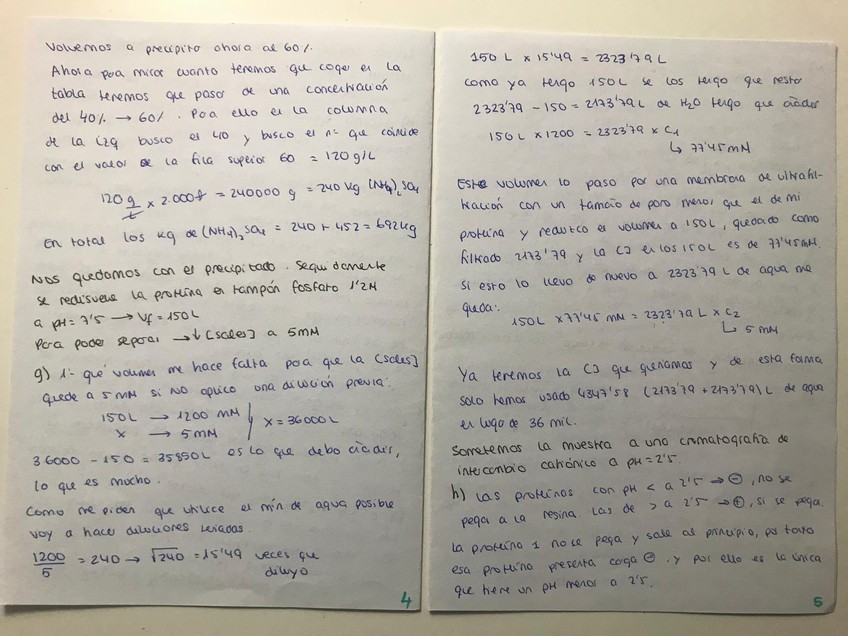 Volvemos a precipito ahora al 60%.
Ahora para mirar cuanto tenemos que coger en la
tabla tenemos que pasar de una concentración
del 40% → 60%. Para ello en la columna
de la izq busco el 40 y busco el nº que coincide
con el valor de la fila superior 60 = 120 g/L
120 g/L x 2.000 L = 240000 g = 240 Kg (NH4)2 SO4
En total los Kg de (NH4)2 SO4 = 240 + 452 = 692 Kg
Nos quedamos con el precipitado. Seguidamente
se redisuelve la proteína en tampón fosfato 1'2M
a pH = 7'5 → Vf = 150L
Para poder separar → ↓ [sales] a 5mM
g) 1º qué volumen me hace falta para que la [sales]
quede a 5 mM si NO aplico una dilución previa:
150L → 1200 mM
x → 5 mM
x = 36000L
36000 - 150 = 35850L es lo que debo añadir,
lo que es mucho.
Como me piden que utilice el mín de agua posible
voy a hacer diluciones seriadas.
1200/5 = 240 → √240 = 15'49 veces que
diluyo
4
150 L x 15'49 = 2323'79 L
como ya tengo 150L se los tengo que restar
2323'79 - 150 = 2173'79 L de H2O tengo que añadir
150L x 1200 = 2323'79 x C1
↳ 77'45 mM
Este volumen lo paso por una membrana de ultrafil-
tración con un tamaño de poro menor que el de mi
proteína y reduzco el volumen a 150L, quedando como
filtrado 2173'79 y la [] en los 150L es de 77'45mM.
Si esto lo llevo de nuevo a 2323'79 L de agua me
queda:
150L x 77'45 mM = 2323'79 L x C2
↳ 5 mM
Ya tenemos la [] que queríamos y de esta forma
solo hemos usado 4347'58 (2173'79 + 2173'79) L de agua
en lugar de 36 mil.
Sometemos la muestra a una cromatografía de
intercambio catiónico a pH = 2'5.
h) Las proteínas con pH < a 2'5 → ⊖, no se
pega a la resina. Las de > a 2'5 → ⊕, si se pega.
La proteína 1 no se pega y sale al principio, por tanto
esa proteína presenta carga ⊖ y por ello es la única
que tiene un pH menor a 2'5.
5